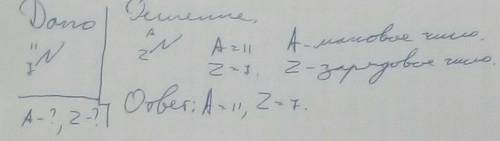 Дано
Решение.
¹¹₇N
ᴬ_Z N
A = 11
A - массовое число.
Z = 7.
Z - зарядовое число.
A - ?, Z - ?
Ответ: A = 11, Z = 7.